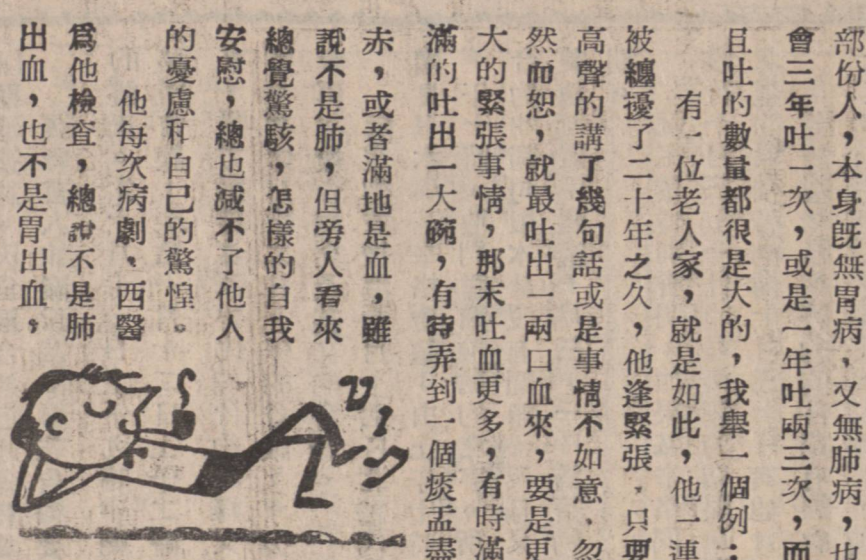 部份人，本身旣無胃病，又無肺病，也
會三年吐一次，或是一年吐兩三次，而
且吐的數量都很是大的，我舉一個例：
有一位老人家，就是如此，他一連
被纏擾了二十年之久，他逢緊張，只要
高聲的講了幾句話或是事情不如意，忽
然而恕，就最吐出一兩口血來，要是更
大的緊張事情，那末吐血更多，有時滿
滿的吐出一大碗，有時弄到一個痰盂盡
赤，或者滿地是血，雖
說不是肺，但旁人看來
總覺驚駭，怎樣的自我
安慰，總也減不了他人
的憂慮和自己的驚惶。
他每次病劇，西醫
爲他檢查，總說不是肺
出血，也不是胃出血，